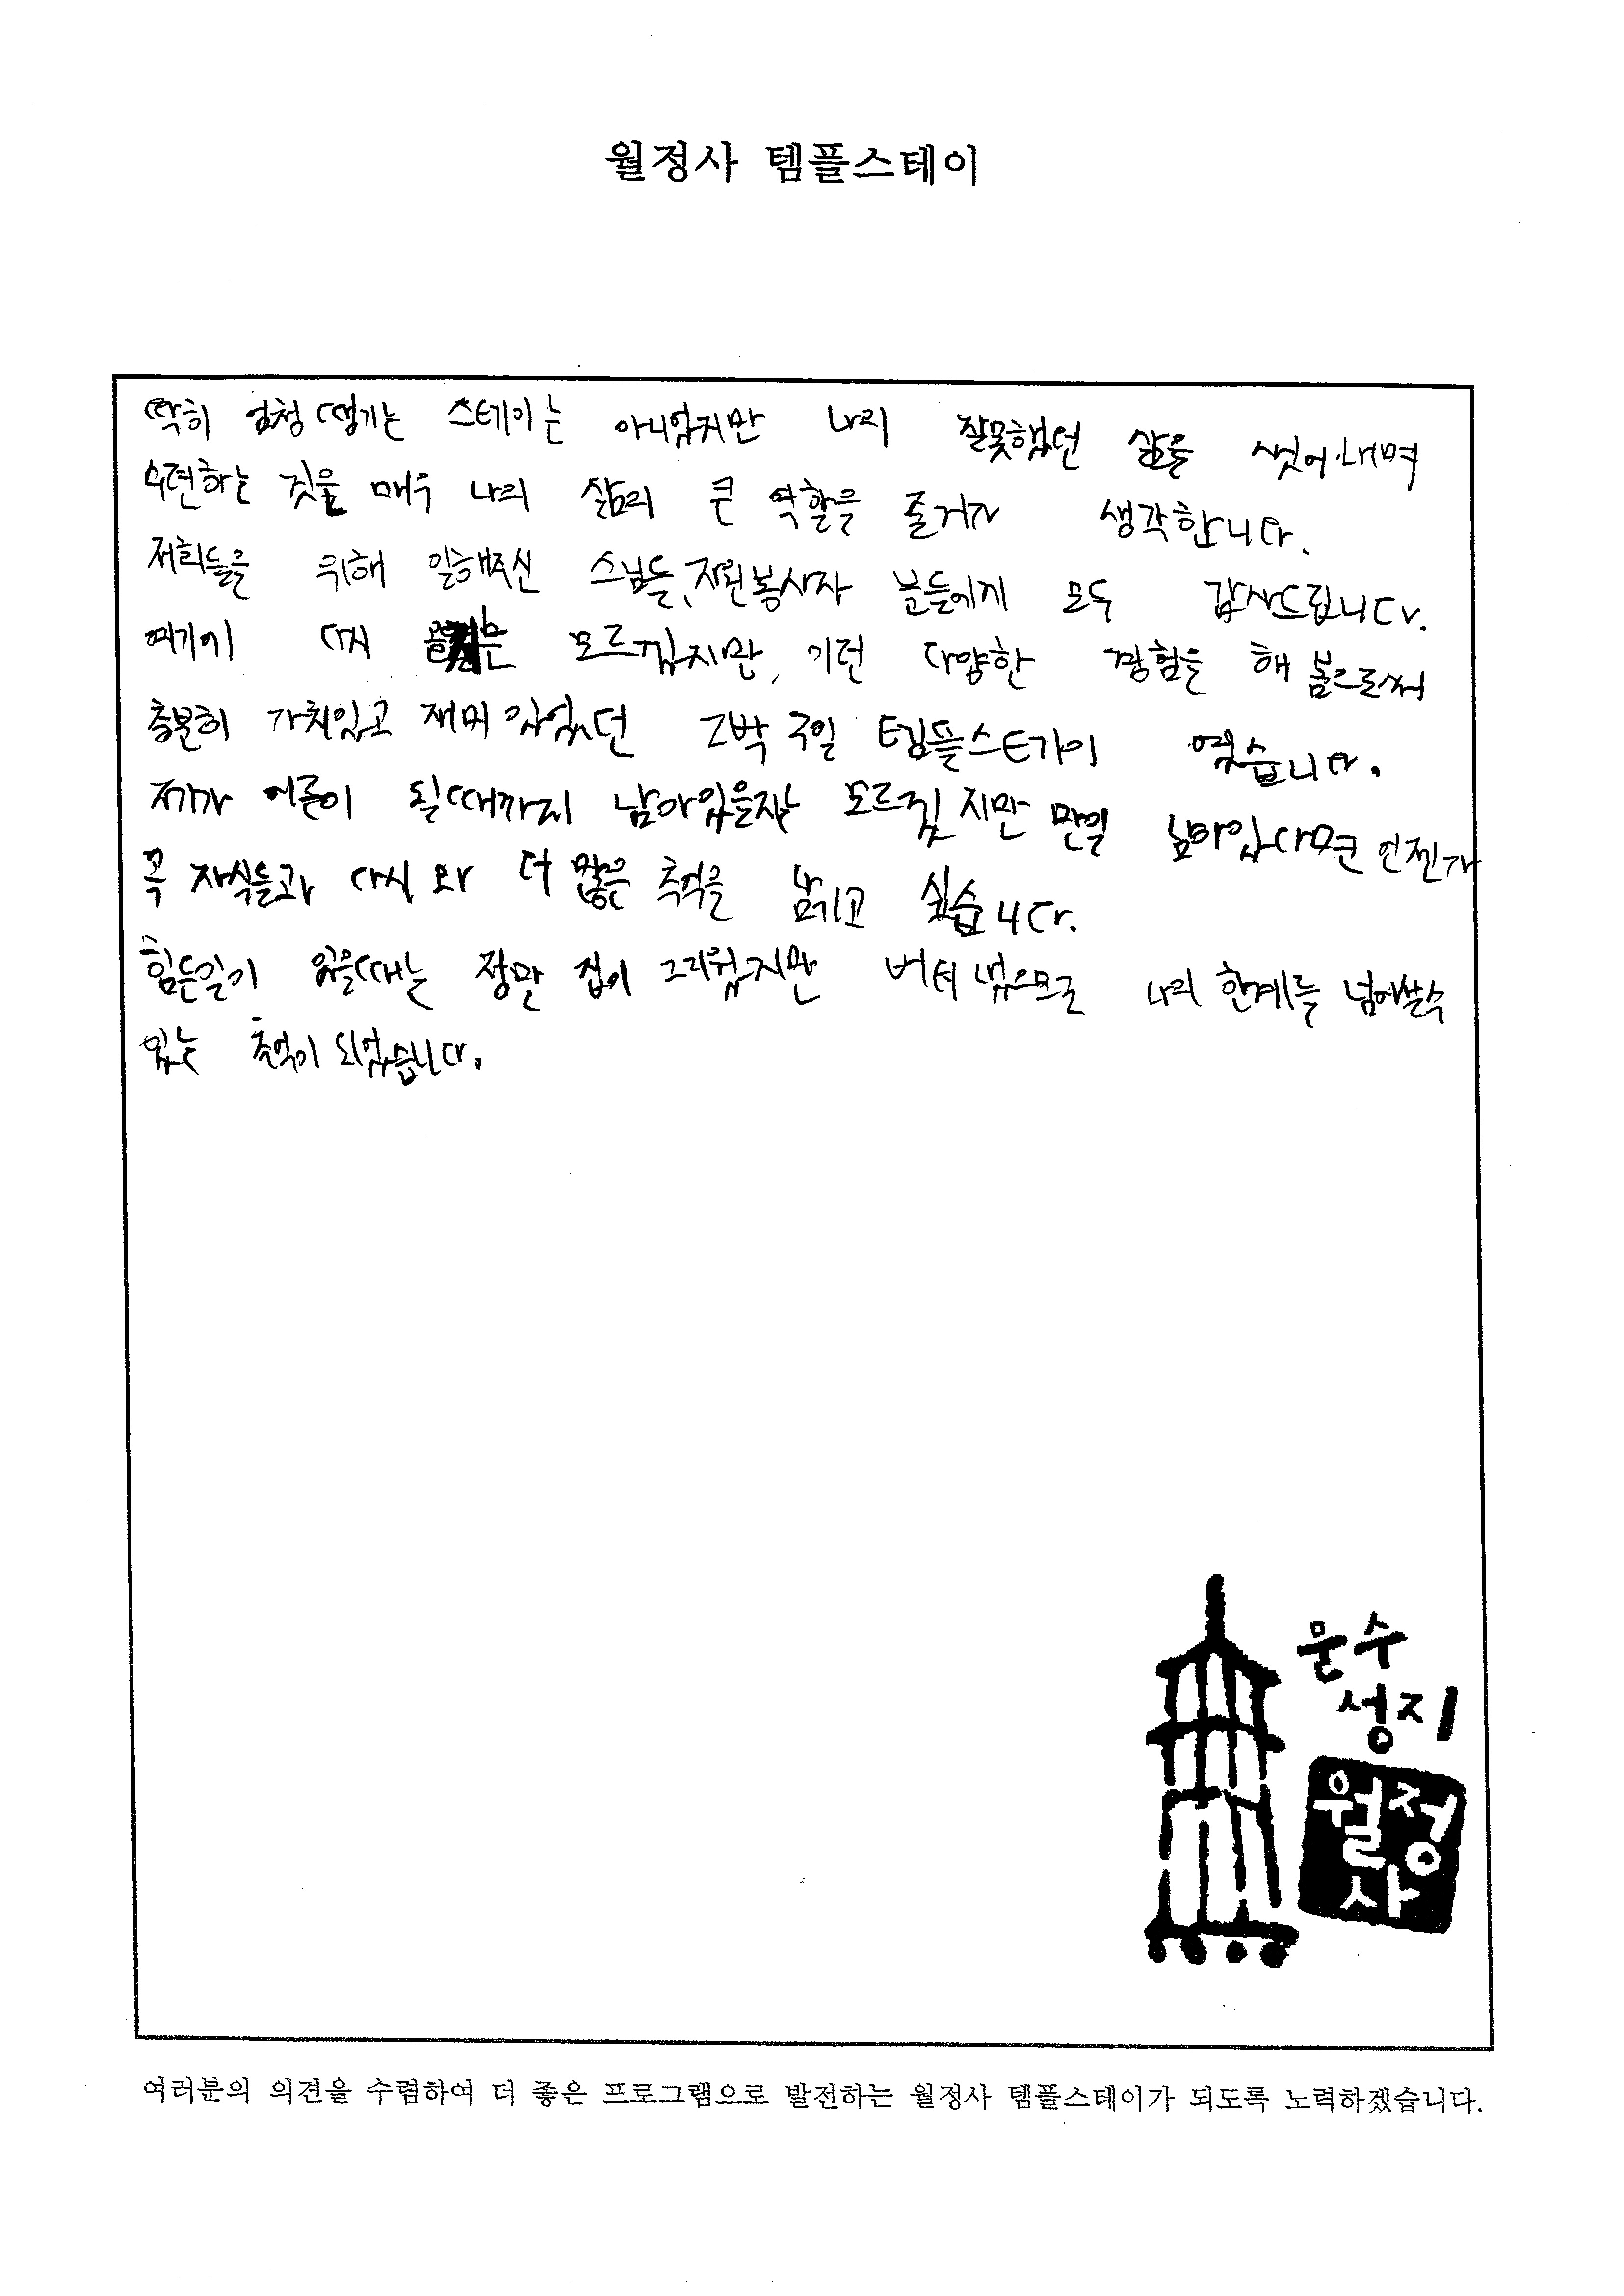 월정사 템플스테이
딱히 엄청 땡기는 스테이는 아니었지만 나의 잘못했던 삶을 씻어내며
수련하는 것을 매우 나의 삶의 큰 역할을 줄거라 생각합니다.
저희들을 위해 일해주신 스님들, 자원봉사자 분들에게 모두 감사드립니다.
여기에 다시 모르겠지만, 이런 다양한 경험을 해 봄으로써
충분히 가치있고 재미 있었던 2박 3일 템플스테이 였습니다.
제가 어른이 될때까지 남아있을지는 모르겠지만 만일 남아있다면 언젠가
꼭 자식들과 다시 와 더 많은 추억을 남기고 싶습니다.
힘든일이 있을때는 정말 집이 그리웠지만 버텨 냈으므로 나의 한계를 넘어설수
있는 추억이 되었습니다.
문수
성지
월정
사
여러분의 의견을 수렴하여 더 좋은 프로그램으로 발전하는 월정사 템플스테이가 되도록 노력하겠습니다.